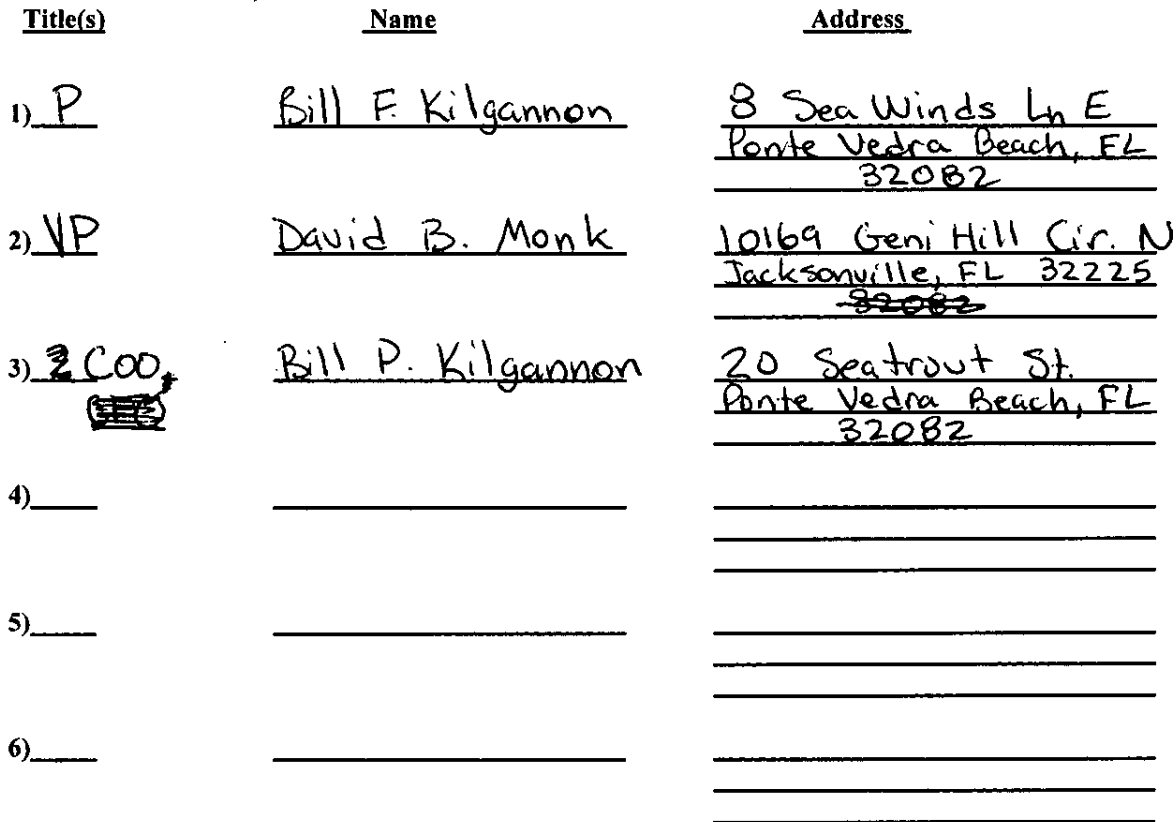 Title(s) Name Address
1) P Bill F. Kilgannon 8 Sea Winds Ln E
Ponte Vedra Beach, FL
32082
2) VP David B. Monk 10169 Geni Hill Cir. N
Jacksonville, FL 32225
32082
3) COO, Bill P. Kilgannon 20 Seatrout St.
Ponte Vedra Beach, FL
32082
4)
5)
6)